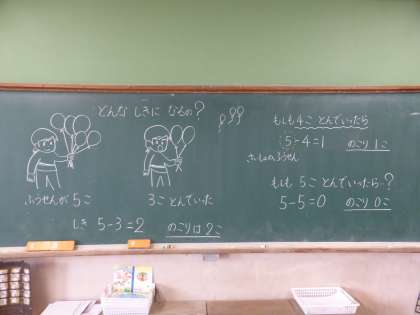 どんな しきに なるの?
ふうせんが 5こ
3こ とんでいった
しき 5-3=2 のこりは 2こ
もしも 4こ とんでいったら
5-4=1 のこり 1こ
さいしょのふうせん
もしも 5こ とんでいったら…?
5-5=0 のこり 0こ